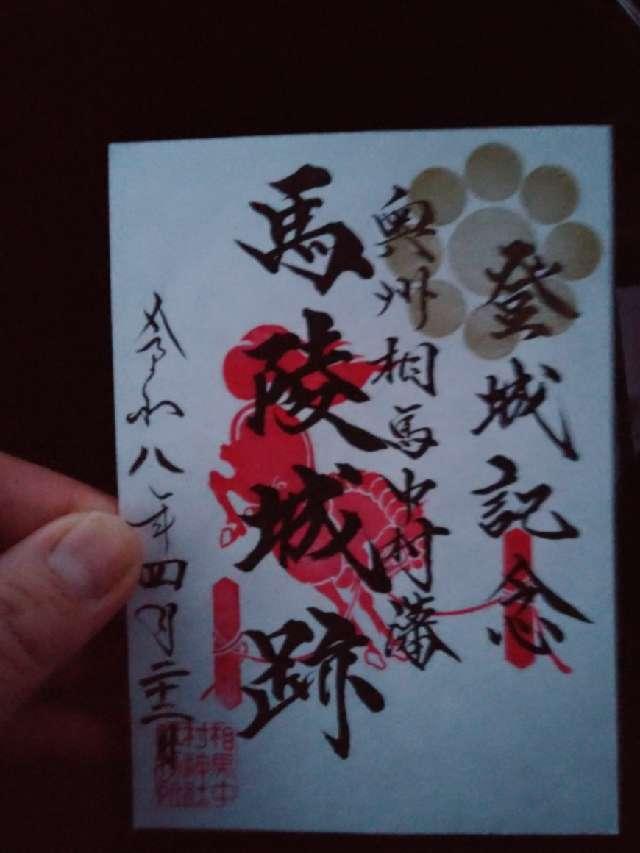 登城記念
奥州相馬中村藩
馬陵城跡
令和八年四月二十二日
相馬中
村神社